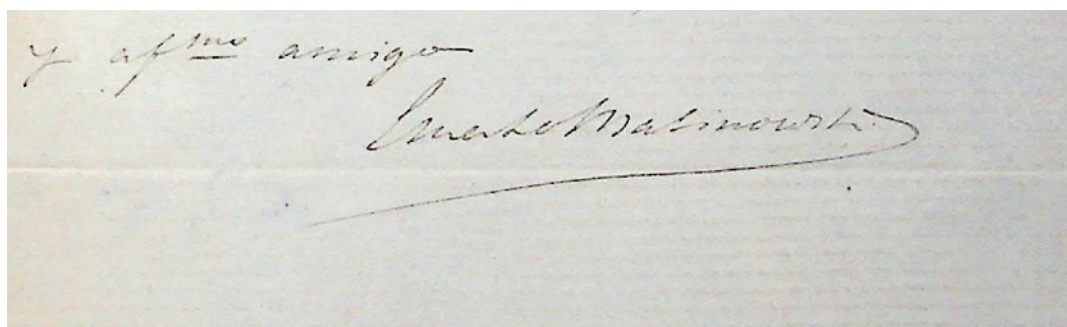 y afmo amigo
Ernesto Malinowski